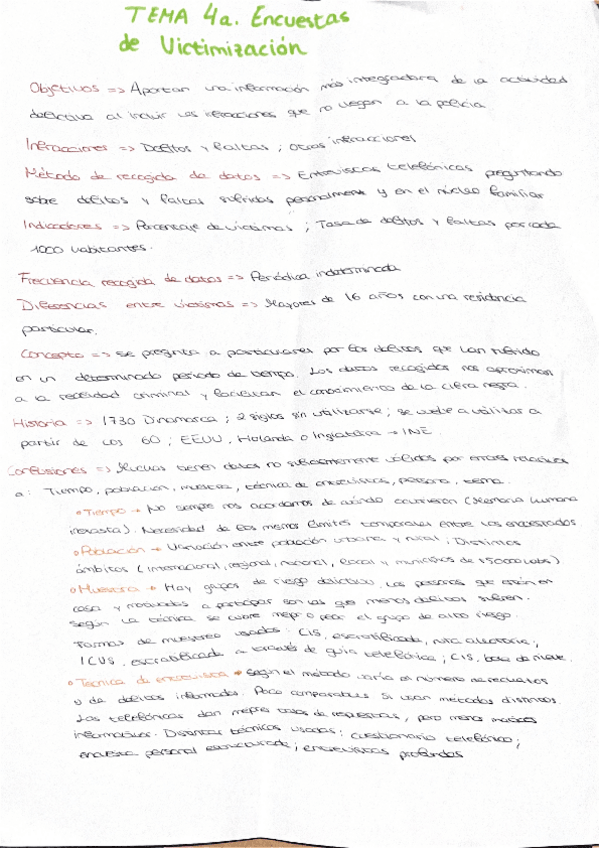 TEMA 4a. Encuestas
de Victimización
Objetivos => Aportan una información más integradora de la actividad
delictiva al incluir las infracciones que no llegan a la policía
Infracciones => Delitos y faltas ; otras infracciones
Método de recogida de datos => Entrevistas telefónicas preguntando
sobre delitos y faltas sufridas personalmente y en el núcleo familiar
Indicadores => Porcentaje de víctimas ; Tasa de delitos y faltas por cada
1000 habitantes.
Frecuencia recogida de datos => Periódica indeterminada
Diferencias entre víctimas => Mayores de 16 años con una residencia
particular.
Concepto => Se pregunta a particulares por los delitos que han sufrido
en un determinado periodo de tiempo. Los datos recogidos nos aproximan
a la realidad criminal y facilitan el conocimiento de la cifra negra.
Historia => 1730 Dinamarca ; 2 siglos sin utilizarse ; se vuelve a utilizar a
partir de los 60 ; EEUU, Holanda o Inglaterra → INE.
Confusiones => Muchas tienen datos no suficientemente válidos por errores relativos
a: Tiempo, población, muestra, técnica de entrevistas, persona, tema.
Tiempo → No siempre nos acordamos de cuándo ocurrieron (Memoria humana
inexacta). Necesidad de los mismos límites temporales entre los encuestados
Población → Variación entre población urbana y rural ; Distintos
ámbitos (internacional, regional, nacional, local y municipios de 15000 hab)
Muestra → Hay grupos de riesgo delictivo. Las personas que están en
casa y motivadas a participar son las que menos delitos sufren.
Según la técnica se cubre mejor o peor el grupo de alto riesgo.
Formas de muestreo usadas: CIS, estratificada, ruta aleatoria ;
ICUS, estratificada a través de guía telefónica ; CIS, bola de nieve.
Técnica de entrevista → Según el método varía el número de
de delitos informados. Poco comparables si usan métodos distintos.
Las telefónicas dan mejores tasas de respuestas, pero menos matices
informativos. Distintas técnicas usadas: cuestionario telefónico ;
encuesta personal estructurada ; entrevistas profundas